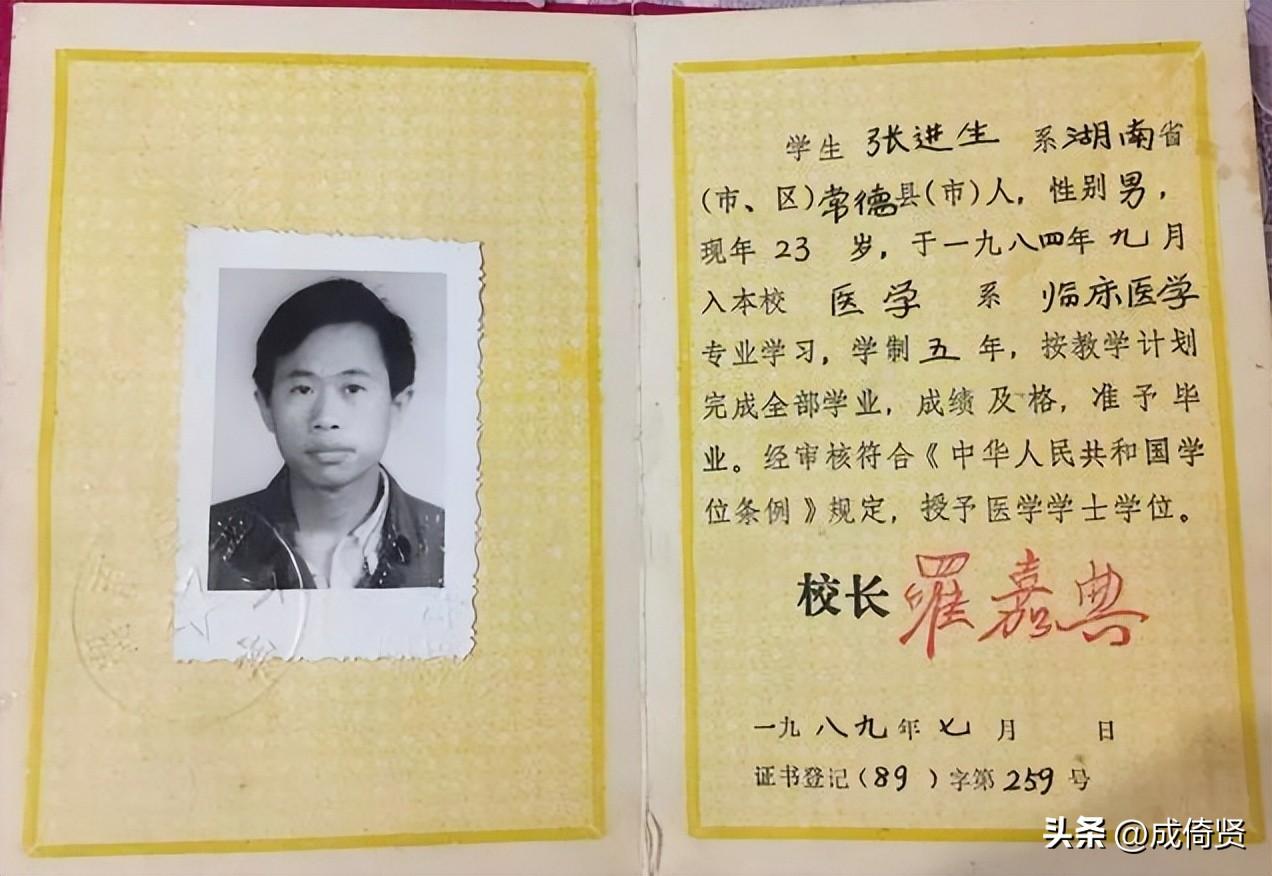 学生 张进生 系湖南省
(市、区)常德县(市)人，性别男，
现年 23 岁，于一九八四年 九 月
入本校 医学 系 临床医学
专业学习，学制 五 年，按教学计划
完成全部学业，成绩及格，准予毕
业。经审核符合《中华人民共和国学
位条例》规定，授予医学学士学位。
校长 罗嘉典
一九八九年 七 月 日
证书登记(89)字第 259 号
头条 @成倚贤